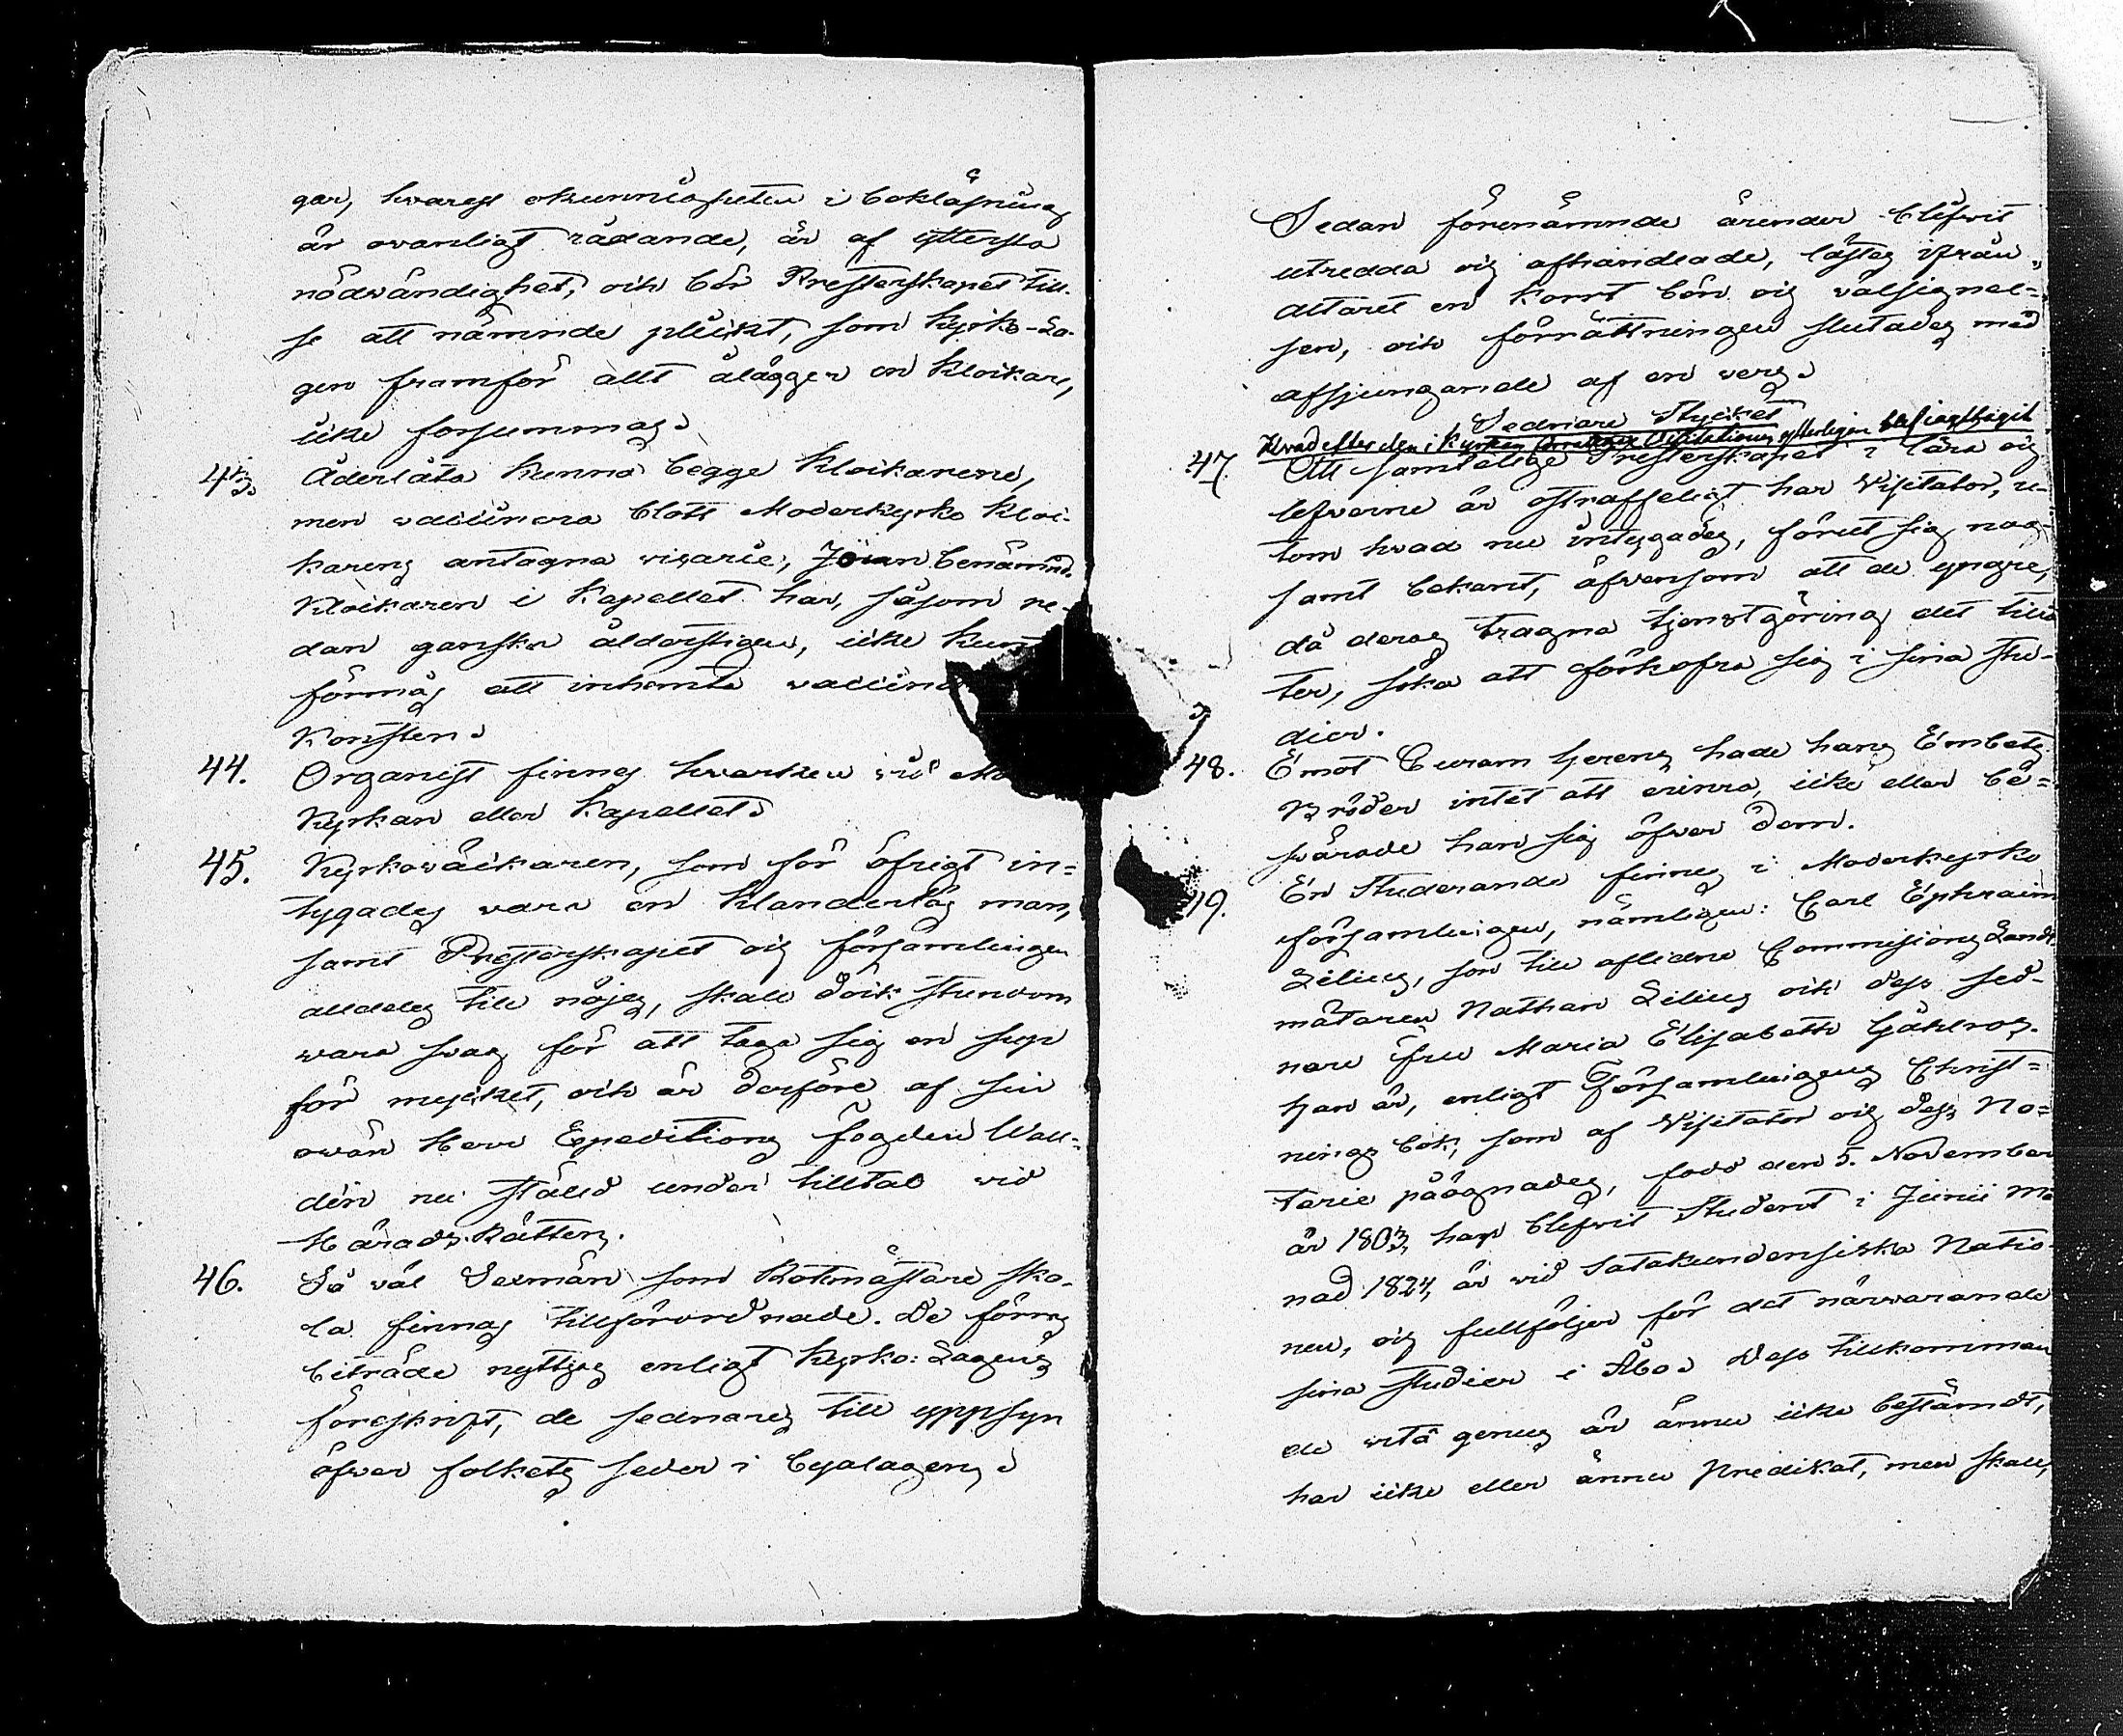 gar, hwars okunnigheten i bokläsning
är ovanligt rådande, är af yttersta
nödwändighet, och bör Presterskapet till-
se att nämnde plickt, som Kyrko-La-
gen framför allt ålägger en Klockare,
icke forsummas.
43. Åderlåta kunna begge Klockarene,
men vaccinera blott Moderkyrko Kloc-
karens antagna vicarie, Johan benämnd.
Klockaren i Kapellet har, såsom re-
dan ganska ålderstigen, icke
förmåg att inhemta
Konsten.
44. Organist finnes hwarken wid
Kyrkan eller Kapellet.
45. Kyrkowäcktaren, som för öfrigt in=
tygades vara en klanderlös man,
samt Presterskapet och församlingen
alldeles till nöjes, skall dock stundom
wara swag för att taga sig en sup
för mycket, och är derföre af sin
owän Herr Expeditions Fogden Wall=
dén nu stäld under tilltal wid
Härads-Rätten.
46. Så wäl Sexmän som Rotemästare sko-
la finnas tillförordnade. De förras
biträde nyttjas enligt Kyrko-Lagens
föreskrift, de sednares till uppsyn
öfwer folkets seder i byalagen.
Sedan förenämnde ärender blifwit
utredda och afhandlade, lästes ifrån
altaret en kort bön och wälsignel=
sen, och förrättningen slutades med
afsjungande af en vers.
Sednare Stycket
Hvad efter den i Kyrkan förrättade Visitationen ytterligare blef iagttagit
47. Att samtelige Presterskapet i lära och
lefwerne är ostraffeligt har Visitator, u-
tom hwad nu intygades, förut sig nog-
samt bekant, äfwensom att de yngre,
då deras trägna tjenstgöring det tillå
ter, söka att förkofra sig i sina stu-
dier.
48. Emot Curam gerens hade hans Embets
Bröder intet att erinra, icke eller be=
swärade han sig öfwer dem.
49. En Studerande finnes i Moderkyrko
församlingen, nämligen: Carl Ephraim
Lilius, son till aflidne Commissions Landt
mätaren Nathan Lilius och dess sed-
nare fru Maria Elisabeth
Han är, enligt Församlingens Christ=
nings bok, som af Visitator och dess No=
tarie påögnades, född den 5. November
år 1803, har blifwit Student i Junii må
nad 1824, är wid Satakundensiska Natio-
nen, och fullföljer för det närwarande
sina studier i Åbo. Dess tillkomman
de vitæ genus är ännu icke bestämdt,
har icke eller ännu predikat, men skall,